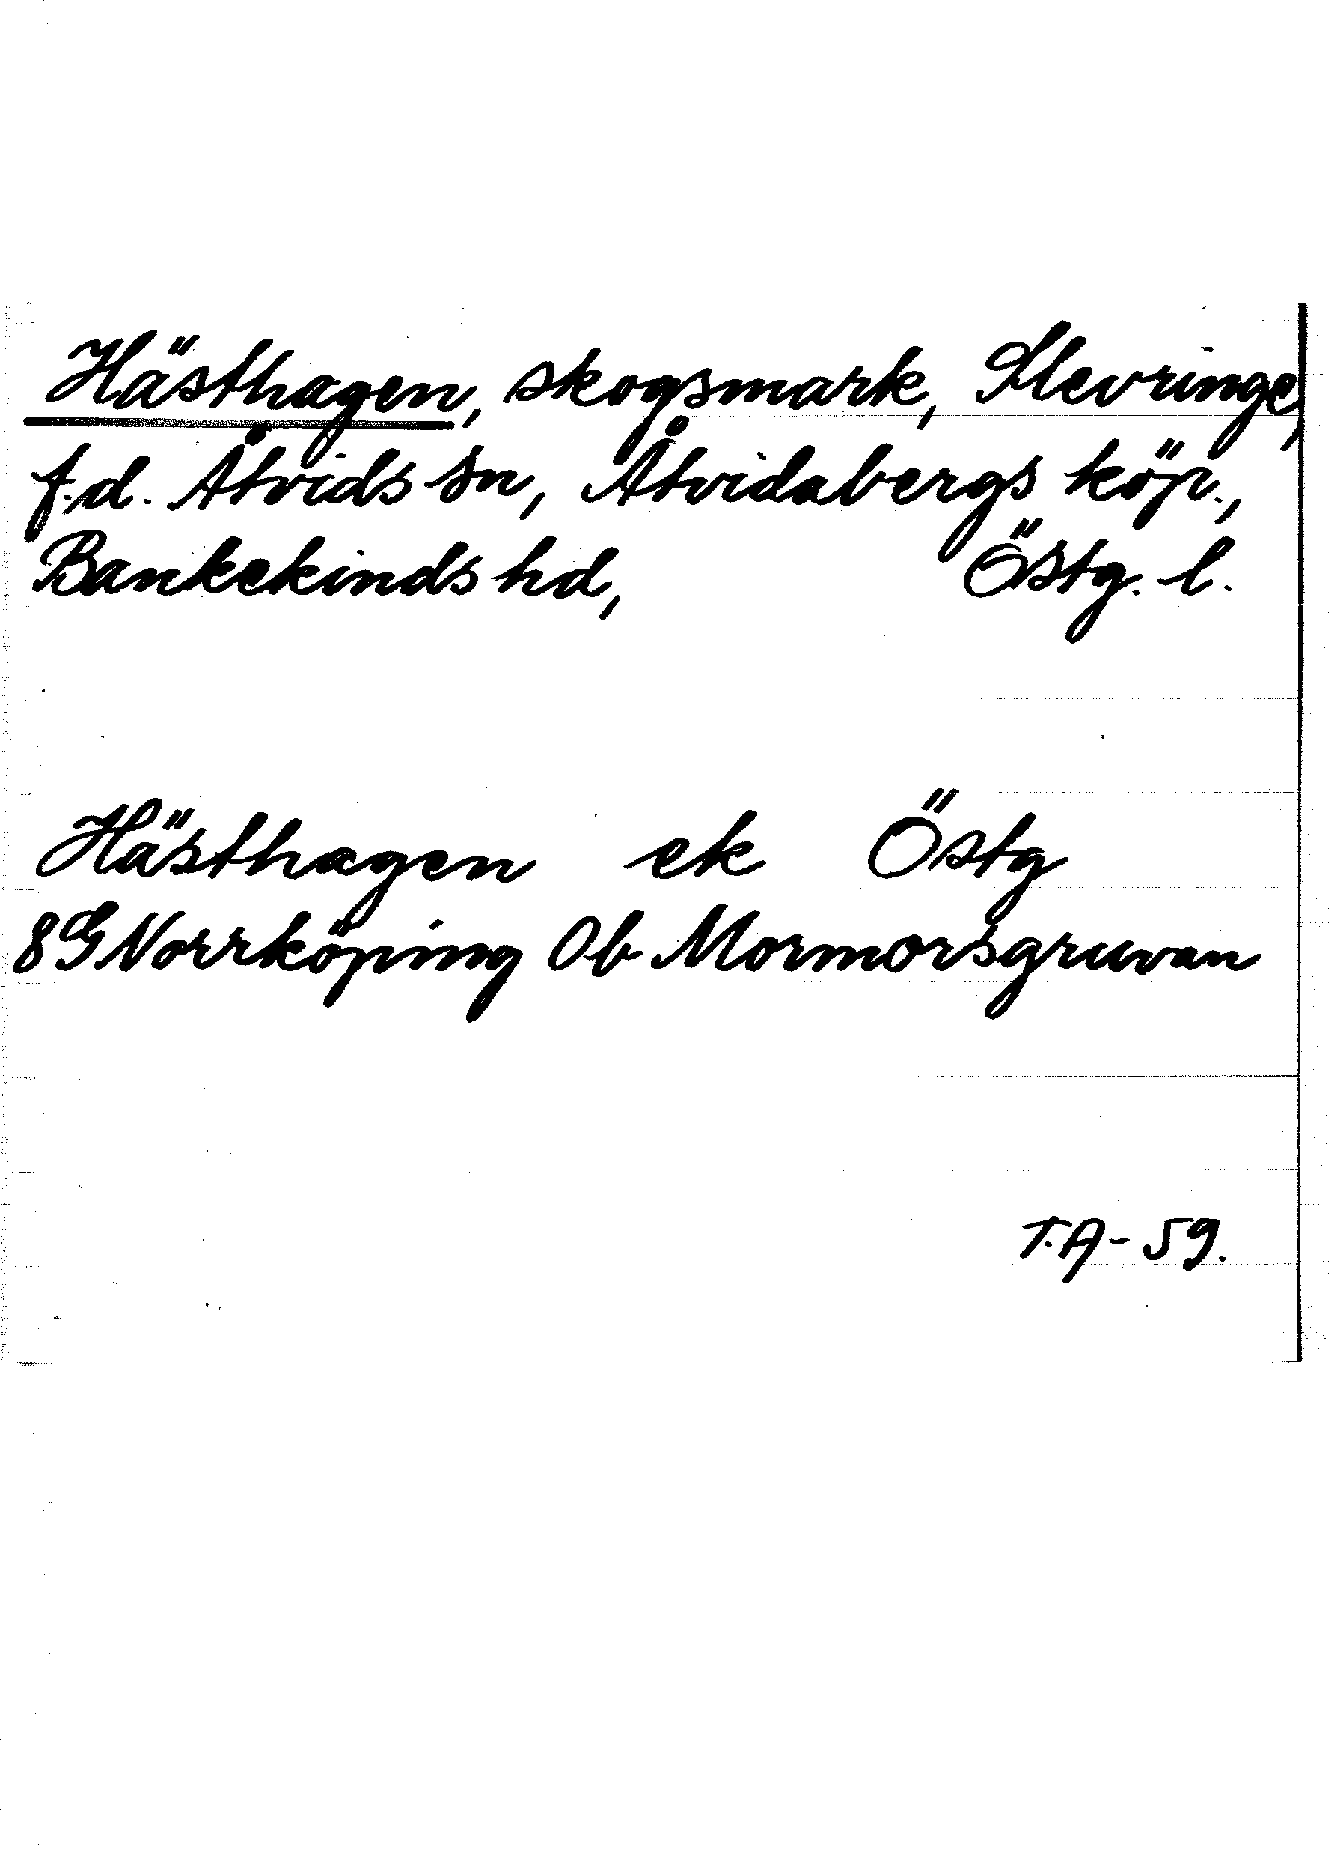 Hästhagen, skogsmark, Slevringe,
f.d. Åtvids sn, Åtvidabergs köp.,
Bankekinds hd, Östg. l.
Hästhagen ek Östg
8G Norrköping Ob Mormorsgruvan
T.A-59.